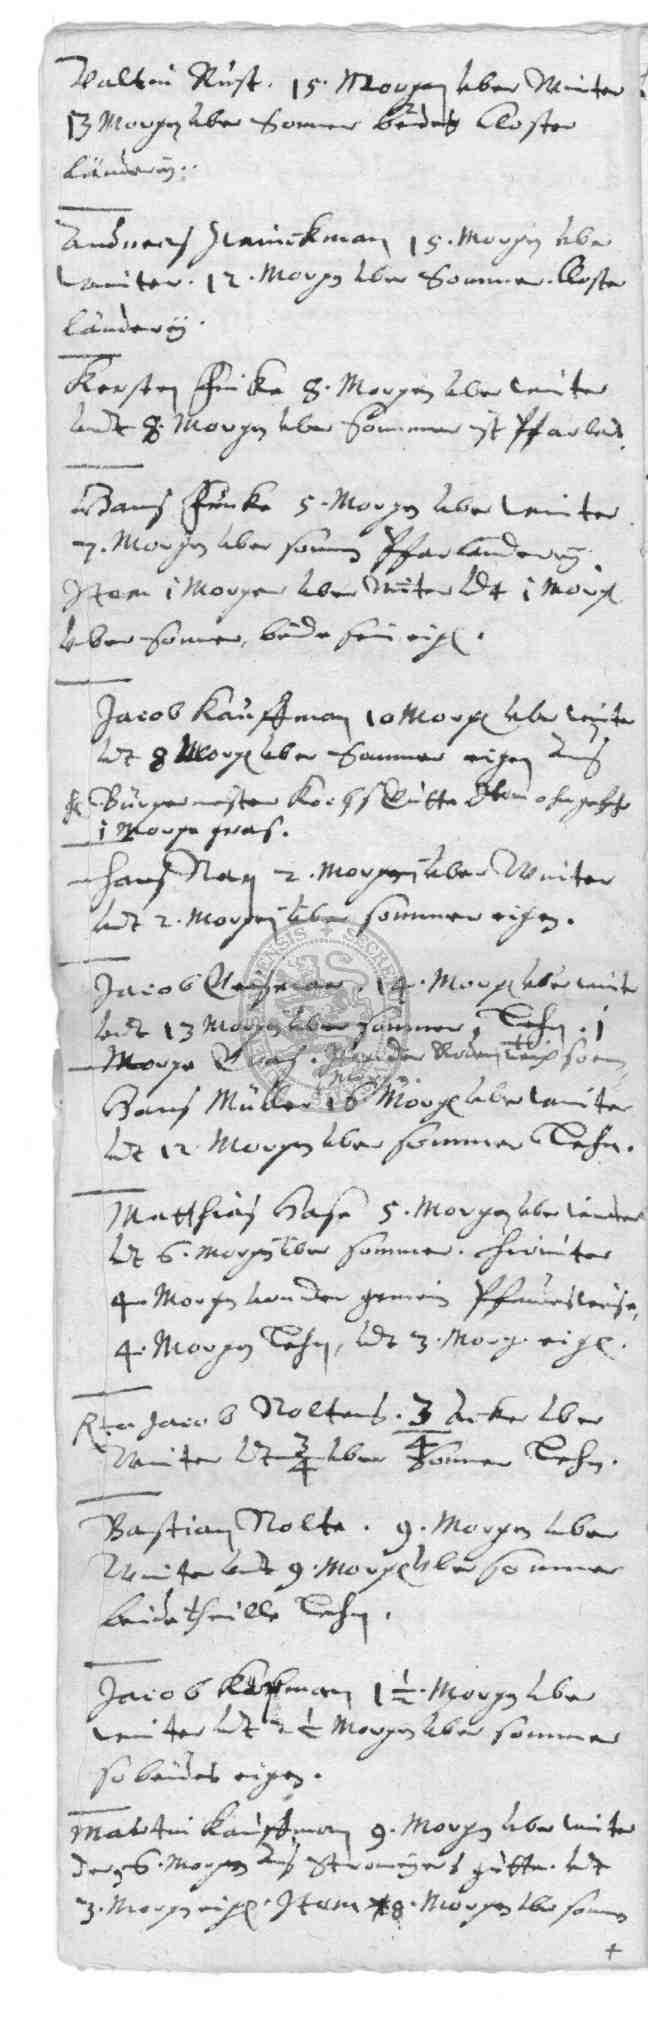 Valtin Rust. 15. Morgen uber Winter
13 Morgen uber Somer beides Closter
länderÿ.
Andreas Heinickman 15. Morgen uber
winter. 12. Morgen uber Sommer. Closter
länderÿ.
Kersten Fincke 8. Morgen uber winter
undt 8. Morgen uber Sommer ist Pfarland.
Hans Fincke 5. Morgen uber winter
7. Morgen uber somer Pfarländereÿ.
Item 1 Morgen uber Winter undt 1 Morgen
uber somer, beide sein eigen.
Jacob Kauffman 10 Morgen uber winter
undt 8 Morgen uber Sommer eigen aus
Bürgermeister Kochs Gütte
1 Morgen gras.
Hans Nay 2. Morgen uber Winter
undt 2. Morgen uber sommer eigen.
Jacob 14. Morgen uber winter
undt 13 Morgen uber sommer, Lehn. 1
Morgen
Hans Müller 16 Morgen uber winter
undt 12 Morgen uber sommer Lehn.
Matthias Hase 5. Morgen uber winter
undt 6. Morgen uber sommer. hirunter
4 Morgen gemein
4. Morgen Lehn, undt 3. Morg. eigen.
Jacob Noltens. 3/4 acker uber
Winter undt 3/4 uber Sommer Lehn.
Bastian Nolte. 9. Morgen uber
Winter undt 9. Morgen uber sommer
beidetheille Lehn.
Jacob Kauffman 1 1/2. Morgen uber
winter undt 2 1/2 Morgen uber sommer
so beides eigen.
Martin Kauffman 9. Morgen uber winter
6. Morgen aus Stromeyers gütte. undt
3. Morgen eigen. Item 8. Morgen uber somer
+